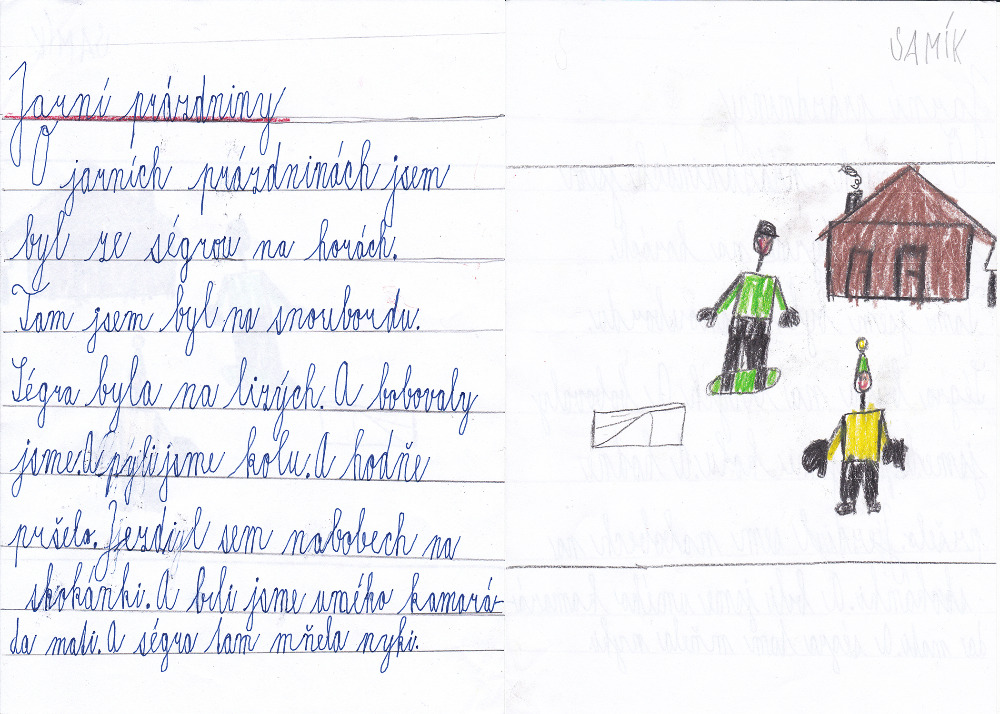 Jarní prázdniny
O jarních prázdninách jsem
byl ze ségrou na horách.
Tam jsem byl na snoubordu.
Ségra byla na lizých. A bobovaly
jsme. A pýli jsme kolu. A hodňe
pršelo. Jezdil sem nabobech na
skokánki. A beli jsme umého kamará-
da mati. A ségra tam mňela nyki.
SAMÍK